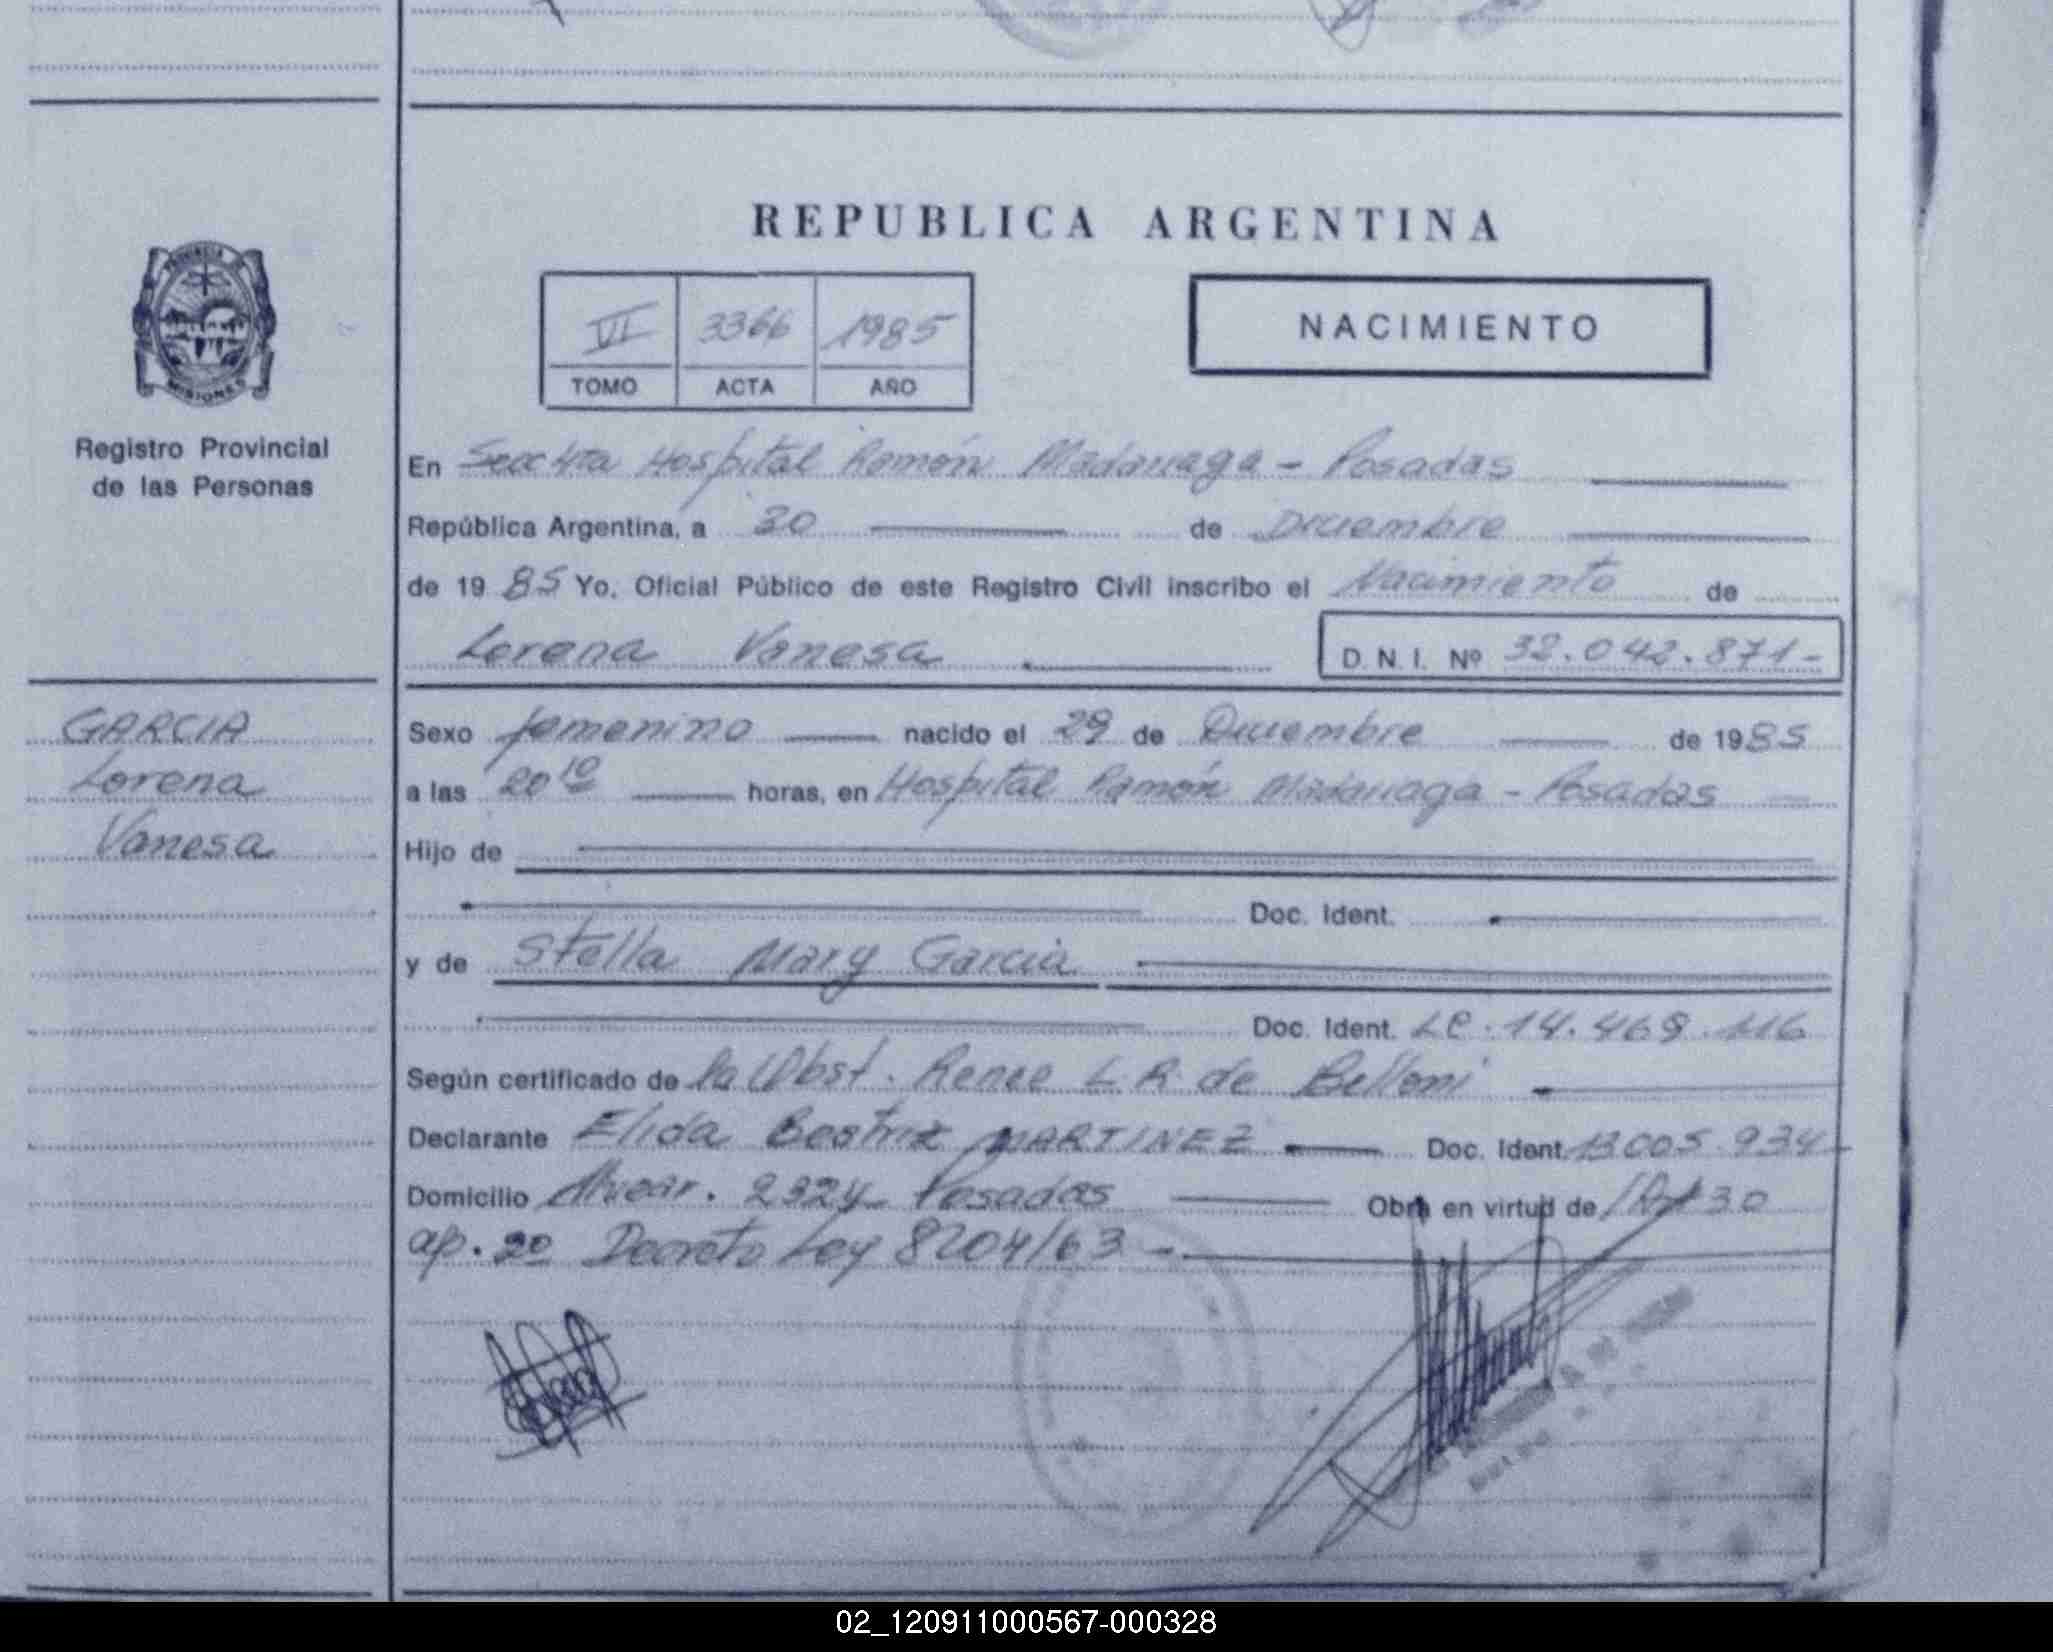 REPUBLICA ARGENTINA
VI 3366 1985
TOMO ACTA AÑO
NACIMIENTO
PROVINCIA DE
MISIONES
Registro Provincial
de las Personas
GARCIA
Lorena
Vanesa
En Secc 4ta Hospital Ramón Madariaga - Posadas
República Argentina, a 30 de Diciembre
de 1985 Yo, Oficial Público de este Registro Civil inscribo el Nacimiento de
Lorena Vanesa D.N.I. Nº 32.042.871-
Sexo femenino nacido el 29 de Diciembre de 1985
a las 20 10 horas, en Hospital Ramón Madariaga - Posadas
Hijo de
Doc. Ident.
y de Stella Mary Garcia
Doc. Ident. LC. 14.469.116
Según certificado de la Obst. Renee L.R. de Belloni
Declarante Elida Beatriz MARTINEZ Doc. Ident. 13.005.934-
Domicilio Alvear. 2324 Posadas Obra en virtud de Art 30
ap. 2º Decreto Ley 8204/63 -
02_120911000567-000328